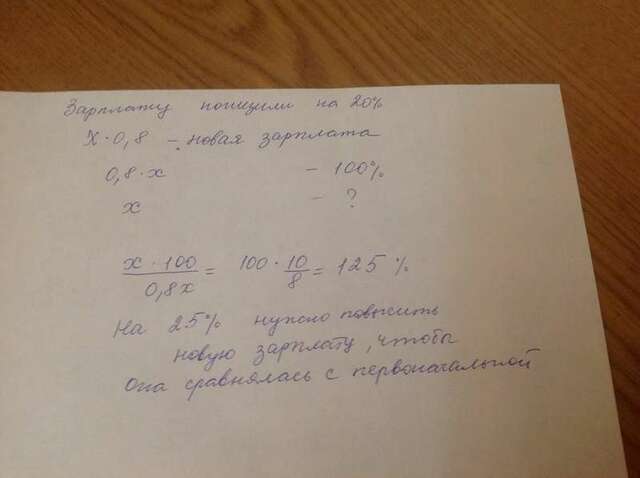 Зарплату понизили на 20%
X · 0,8 – новая зарплата
0,8 · x – 100%
x – ?
x · 100 / 0,8x = 100 · 10/8 = 125 %
На 25% нужно повысить
новую зарплату, чтобы
она сравнялась с первоначальной